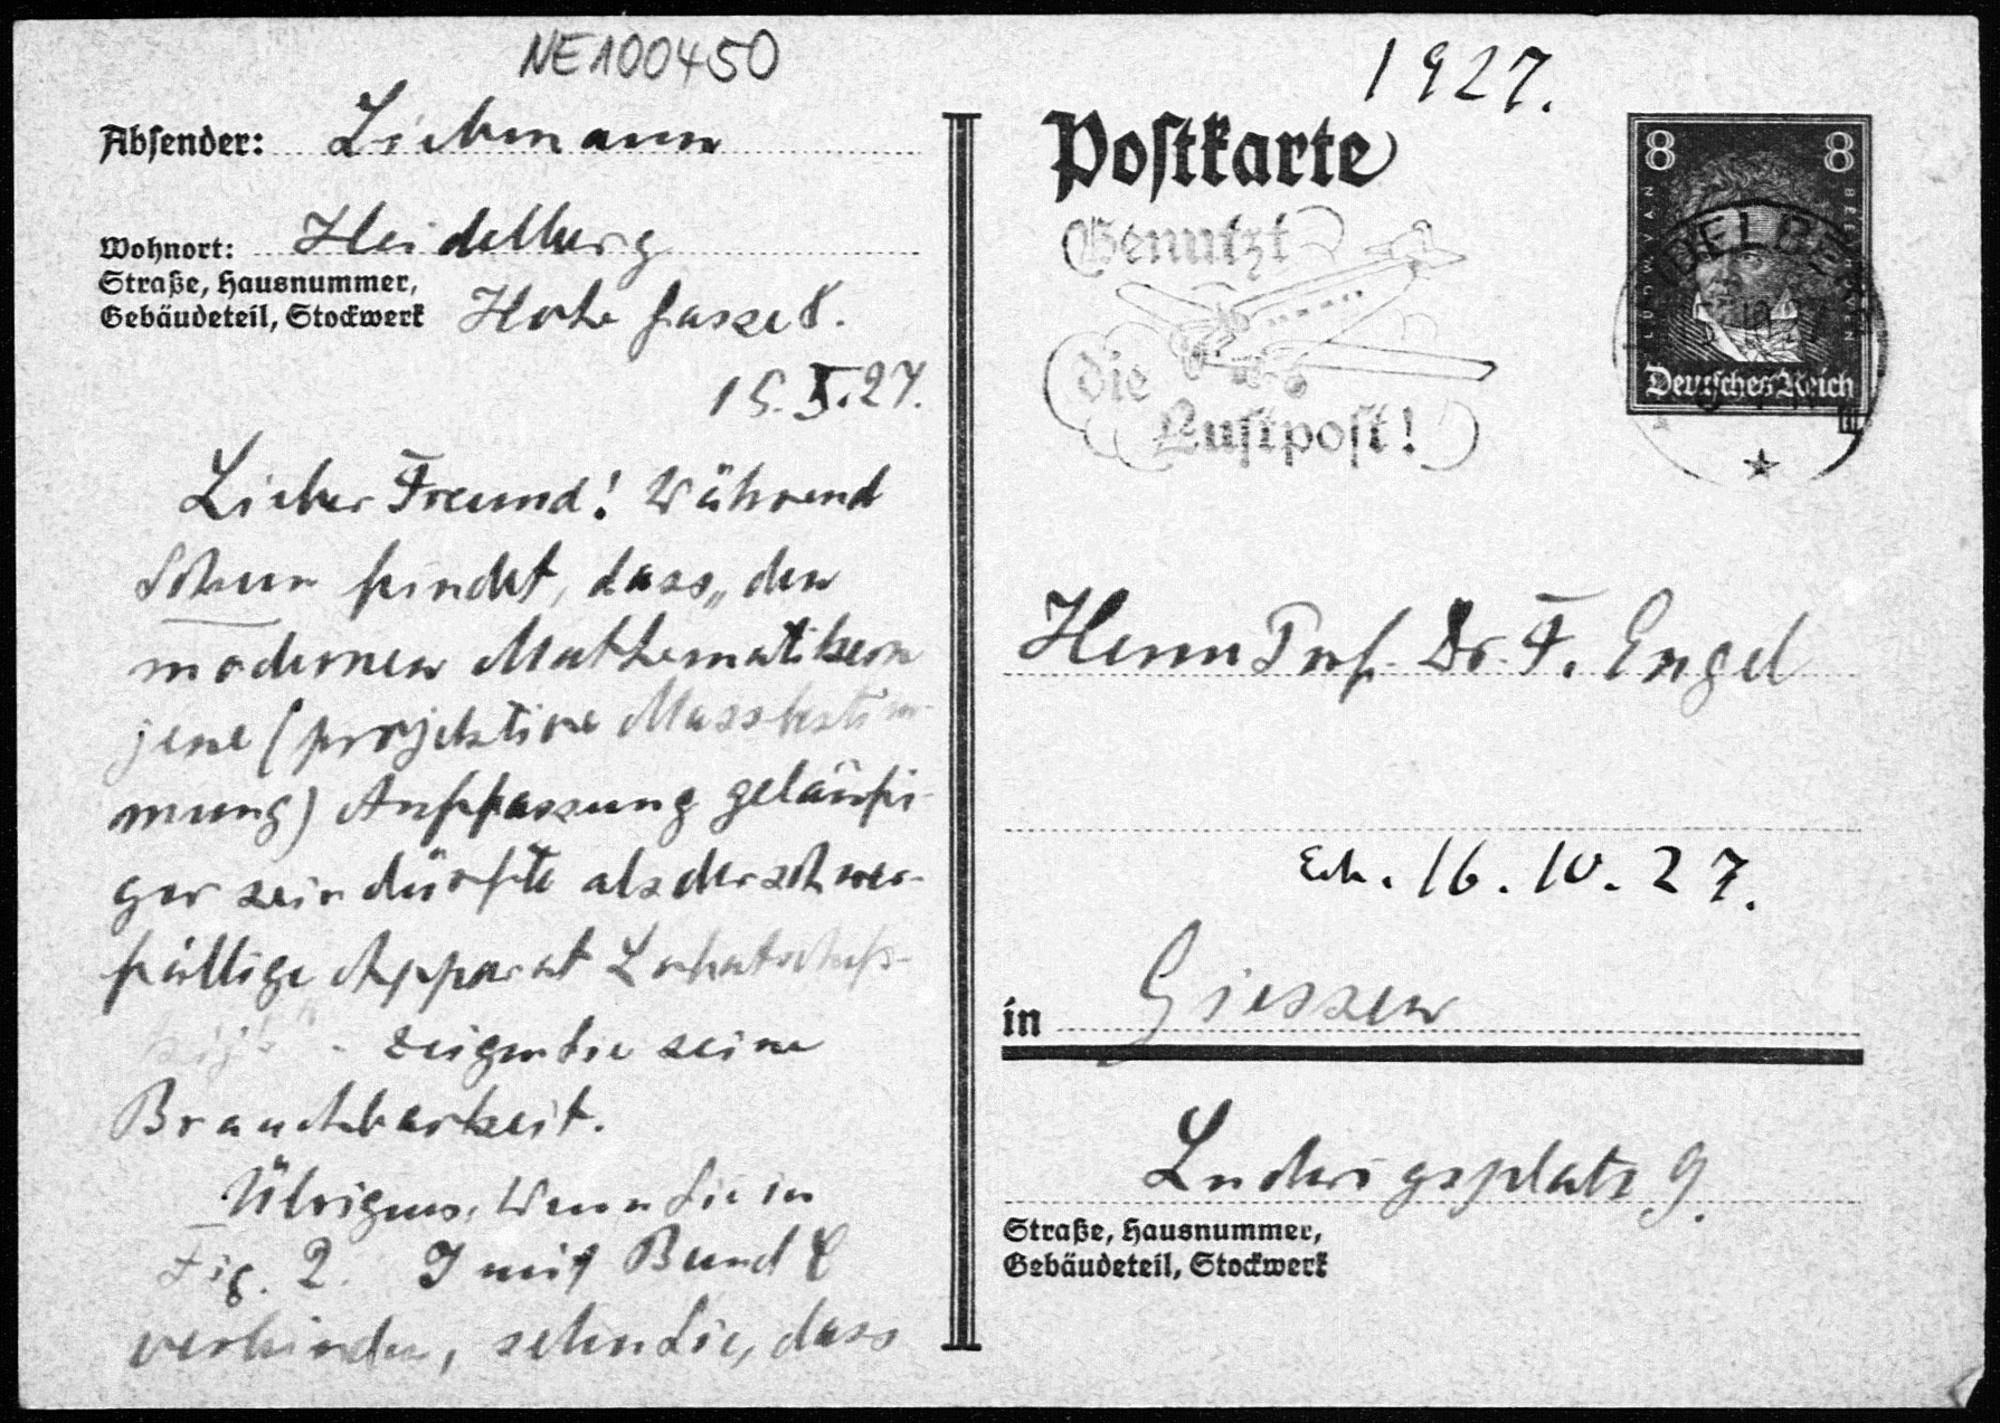 NE100450
Absender: Liebmann
Wohnort: Heidelberg
Straße, Hausnummer,
Gebäudeteil, Stockwerk Hohe Gasse 8.
15. X. 27.
Lieber Freund! Während
Schur findet, dass „den
modernen Mathematikern
jene (projektive Massbestim-
mung) Auffassung geläufi-
ger sein dürfte als der schwer-
fällige Apparat Lobatschefs-
kij's" - zeigen Sie seine
Brauchbarkeit.
Übrigens, Wenn Sie in
Fig. 2. J mit B und C
verbinden, sehen Sie, dass
1927.
Postkarte
Genutzt
die
Luftpost!
8 8
LUDWIG VAN BEETHOVEN
HEIDELBERG
Deutsches Reich
Herrn Prof. Dr. F. Engel
Erh. 16. 10. 27.
in Giessen
Ludwigsplatz 9.
Straße, Hausnummer,
Gebäudeteil, Stockwerk